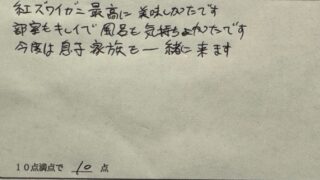 紅ズワイガニ最高に美味しかたです
部室もキレイで風呂も気持ちよかたです
今度は息子家族も一緒に来ます
10点満点で 10 点